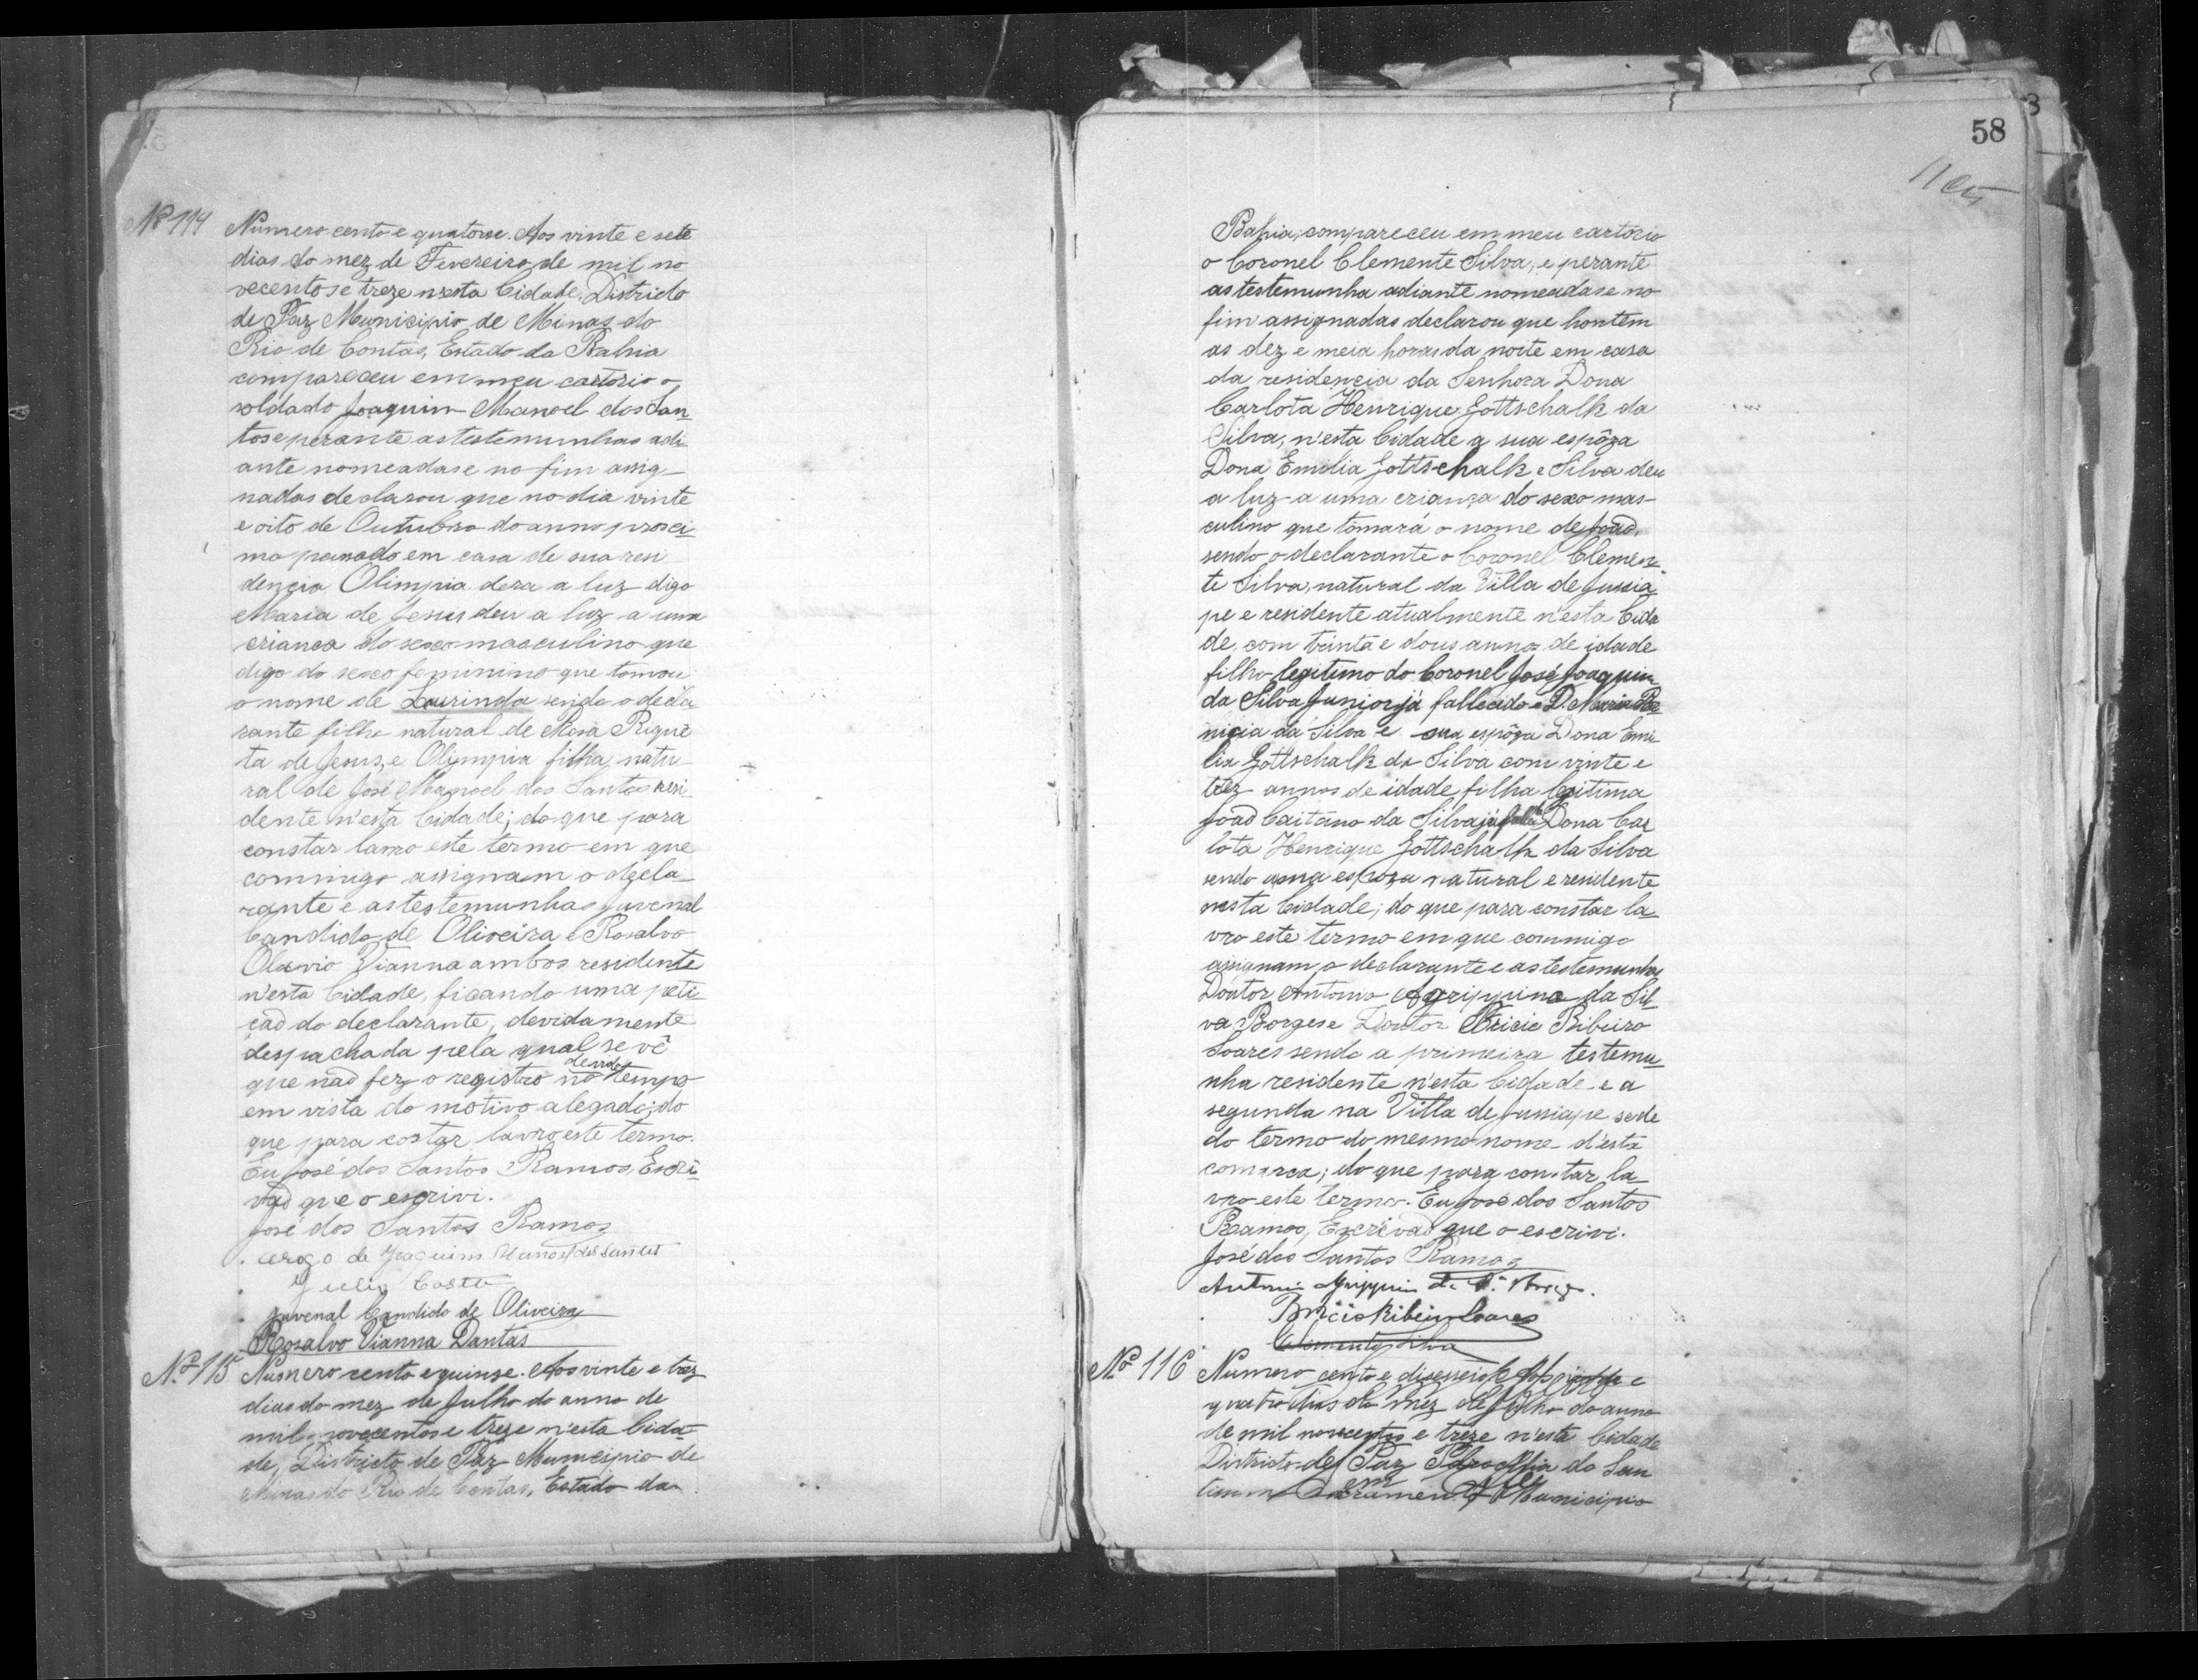 Nº 114
Numero cento e quatorse. Aos vinte e sete
dias do mez de Fevereiro de mil no
vecentos e treze n'esta Cidade, Districto
de Paz Municipio de Minas do
Rio de Contas, Estado da Bahia
compareceu em meu cartorio o
soldado Joaquim Manoel dos San
tos e perante as testemunhas adi
ante nomeadas e no fim assig
nadas declarou que no dia vinte
e oito de Outubro do anno proxi
mo passado em casa de sua resi
dencia Olimpia dera a luz digo
Maria de Jesus deu a luz a uma
criança do sexo masculino que
digo do sexo feminino que tomou
o nome de Laurinda sendo o decla
rante filho natural de Rosa
ta de Jesus, e Olimpia filha natu
ral de José Manoel dos Santos resi
dente n'esta Cidade; do que para
constar lavro este termo em que
commigo assignam o decla
rante e as testemunhas Juvenal
Candido de Oliveira e Rosalvo
Vianna ambos residente
n'esta Cidade, ficando uma peti
cão do declarante, devidamente
despachada pela qual se vê
que não fez o registro no devido tempo
em vista do motivo alegado; do
que para costar lavro este termo.
Eu José dos Santos Ramos, Escri
vão que o escrivi.
José dos Santos Ramos
A rogo de Joaquim Manoel dos Santos
Julio Costa
Juvenal Candido de Oliveira
Rosalvo Vianna Dantas
Nº 115
Numero cento e quinse. Aos vinte e trez
dias do mez de Julho do anno de
mil novecentos e treze n'esta Cida
de, Districto de Paz Municipio de
Minas do Rio de Contas, Estado da
58
Bahia, compareceu em meu cartorio
o Coronel Clemente Silva, e perante
as testemunha adiante nomeadas e no
fim assignadas declarou que hontem
as dez e meia horas da noite em casa
da residencia da Senhora Dona
Carlota Henrique Gottschalk da
Silva, n'esta Cidade a sua espôza
Dona Emilia Gottschalk e Silva deu
a luz a uma criança do sexo mas
culino que tomará o nome de João,
sendo o declarante o Coronel Clemen
te Silva, natural da Villa de Jussia
pe e residente atualmente n'esta Cida
de, com trinta e dous annos de idade
filho legitimo do Coronel José Joaquim
da Silva Junior já fallecido e D. Maria
nicia da Silva e sua espôza Dona Emi
lia Gottschalk da Silva com vinte e
trez annos de idade, filha legitima
João Caitano da Silva já Dona Car
lota Henrique Gottschalk da Silva
sendo espoza natural e residente
nesta Cidade; do que para constar la
vro este termo em que commigo
assignam o declarante e as testemunhas
Doutor Antonio Agrippino da Sil
va Borges e Doutor Bricio Ribeiro
Soares sendo a primeira testemu
nha residente n'esta Cidade e a
segunda na Villa de Jussiape sede
do termo do mesmo nome d'esta
comarca; do que para constar la
vro este termo. Eu José dos Santos
Ramos, Escrivão que o escrivi.
José dos Santos Ramos
Antonio Agrippino da S.ª Borges.
Bricio Ribeiro Soares
Clemente Silva
Nº 116
Numero cento e diseseis. Aos vinte e
quatro dias do mez de Julho do anno
de mil novecentos e treze n'esta Cidade
Districto de Paz Parochia do San
Sacramento Municipio